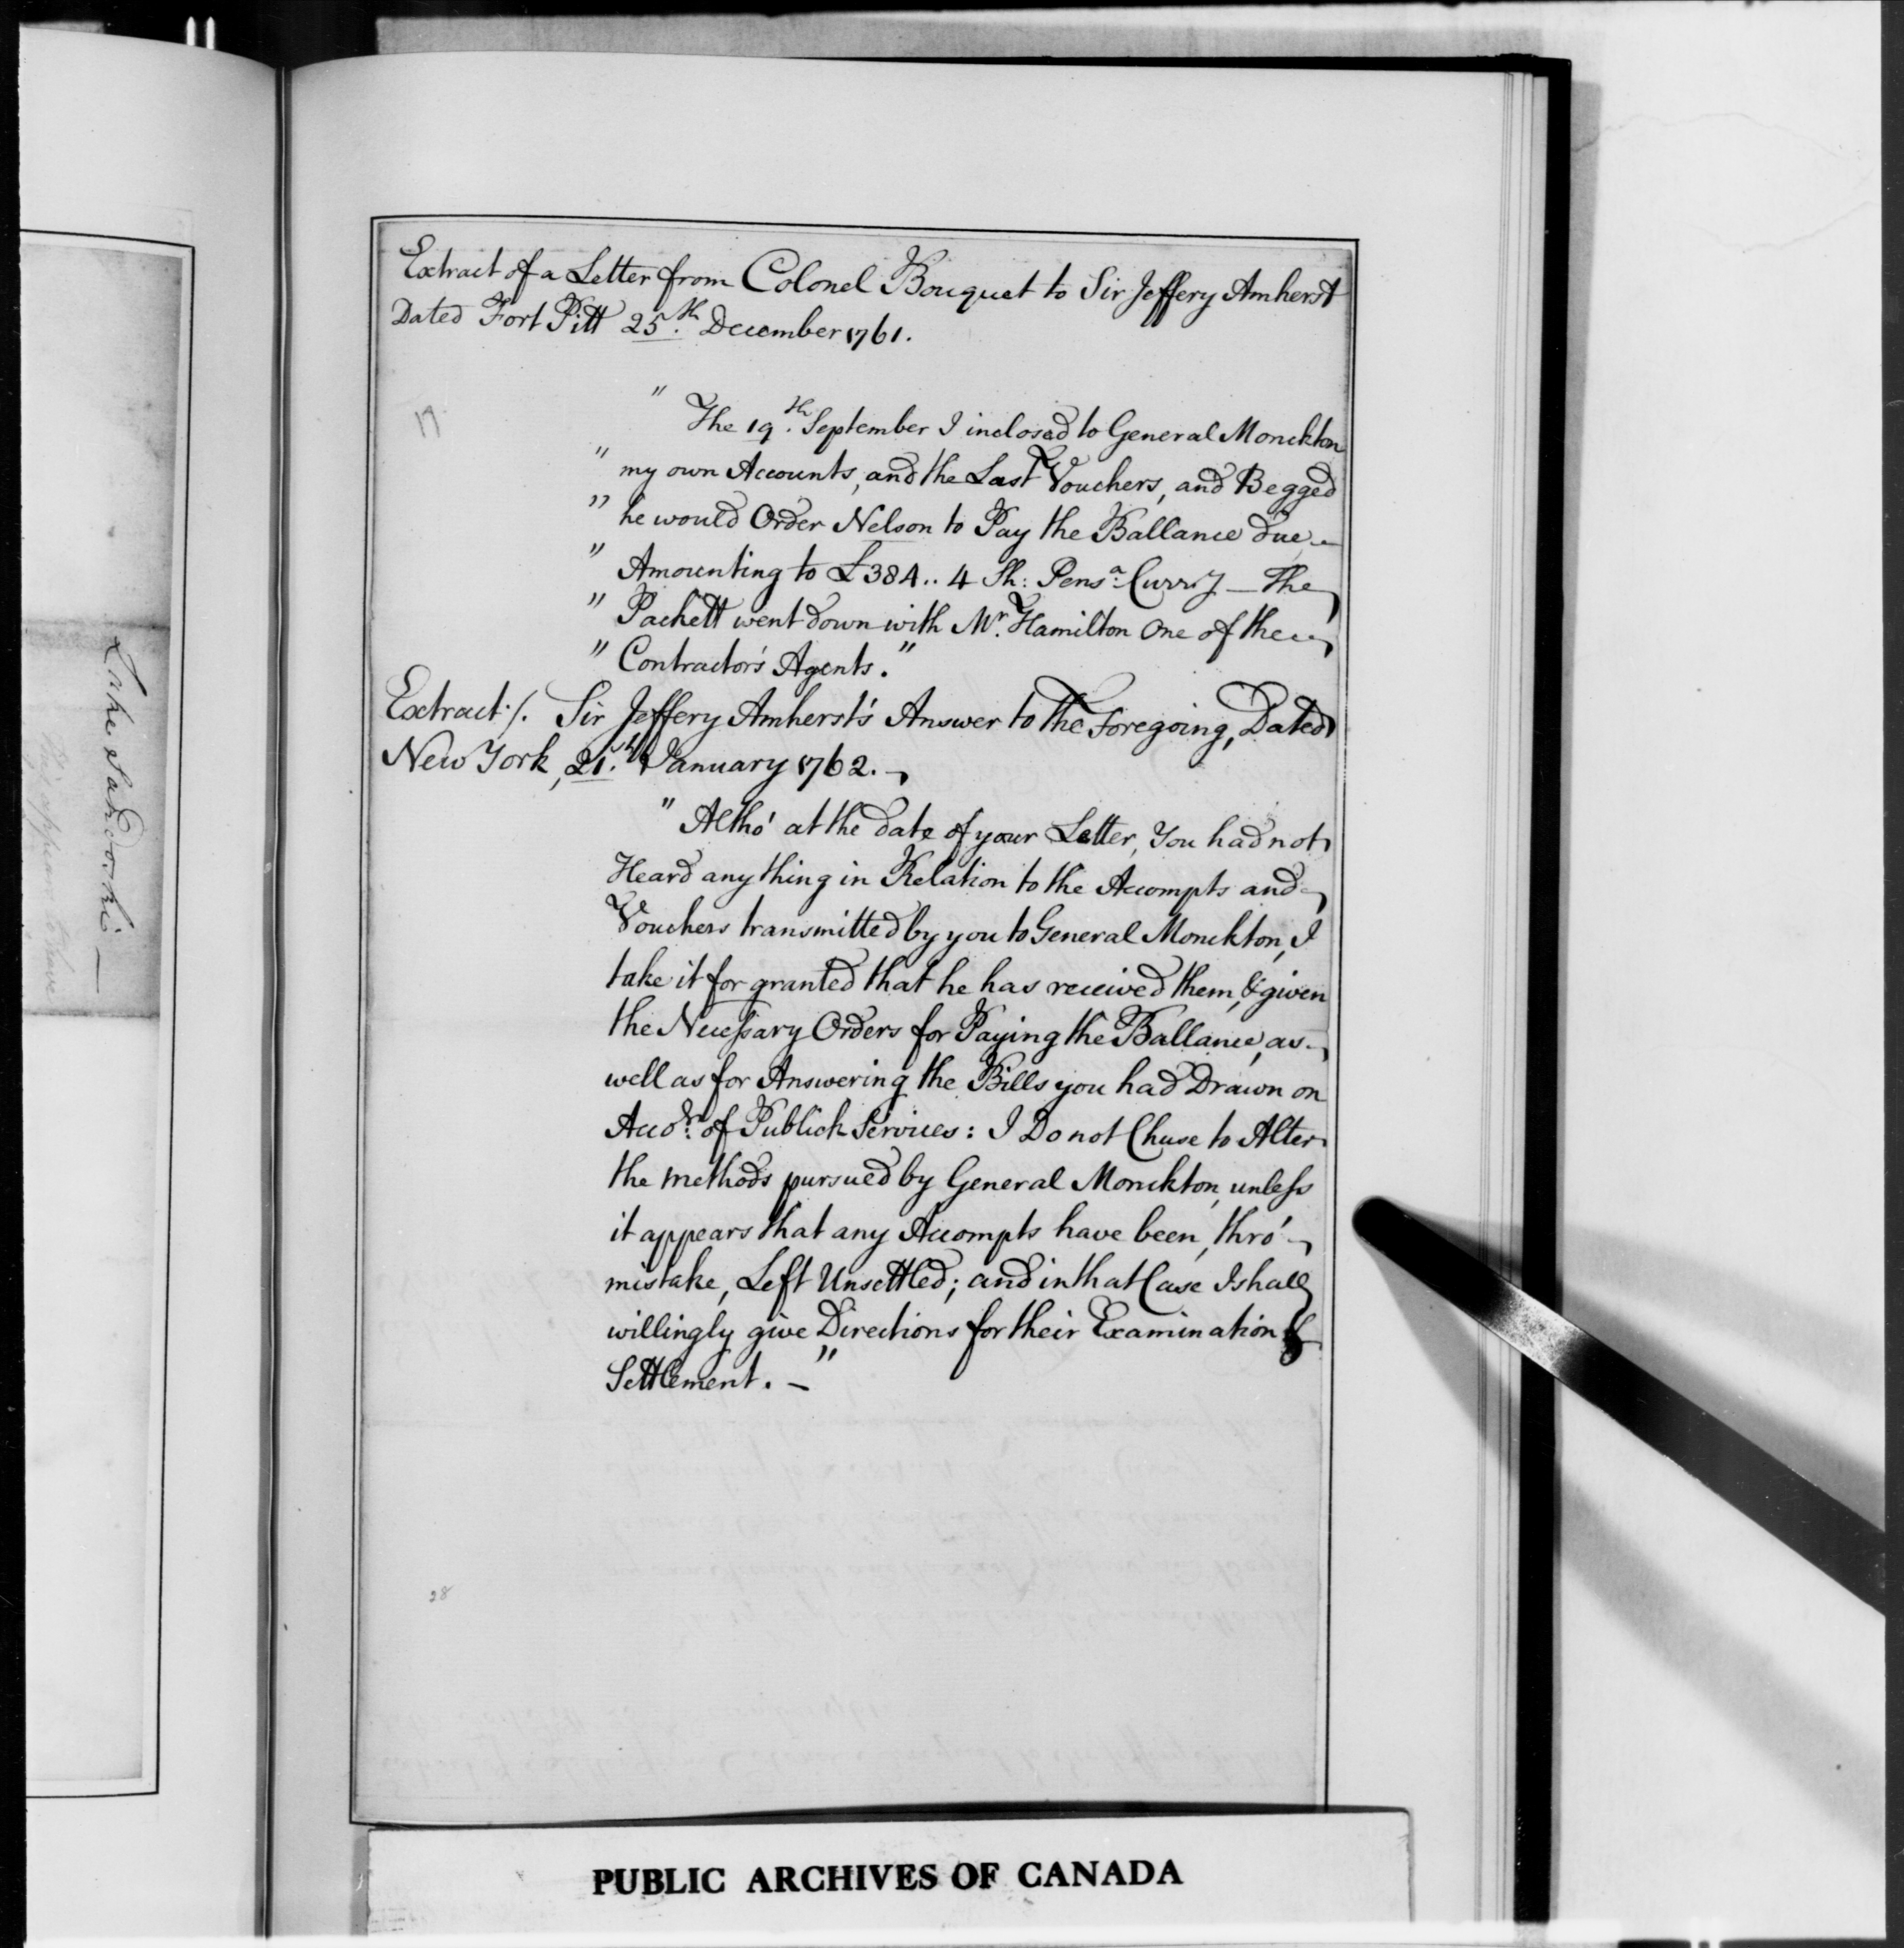 Extract of a Letter from Colonel Bouquet to Sir Jeffery Amherst
Dated Fort Pitt 25.th December 1761.
17
" The 19.th September I inclosed to General Monckton
" my own Accounts, and the Last Vouchers, and Begged
" he would Order Nelson to Pay the Ballance due -
" Amounting to £384..4 Sh: Pens.a Curr.y — The
" Packett went down with Mr. Hamilton One of the
" Contractor's Agents."
Extract:/. Sir Jeffery Amherst's Answer to the Foregoing, Dated
New York, 21.st January 1762.
" Altho' at the date of your Letter, You had not
Heard any thing in Relation to the Accompts and
Vouchers transmitted by you to General Monckton, I
take it for granted that he has received them, & given
the Necessary Orders for Paying the Ballance, as
well as for Answering the Bills you had Drawn on
Acco.t of Publick Services: I Do not Chuse to Alter
the methods pursued by General Monckton, unless
it appears that any Accompts have been, thro'
mistake, Left Unsettled; and in that Case I shall
willingly give Directions for their Examination &
Settlement. — "
28
PUBLIC ARCHIVES OF CANADA